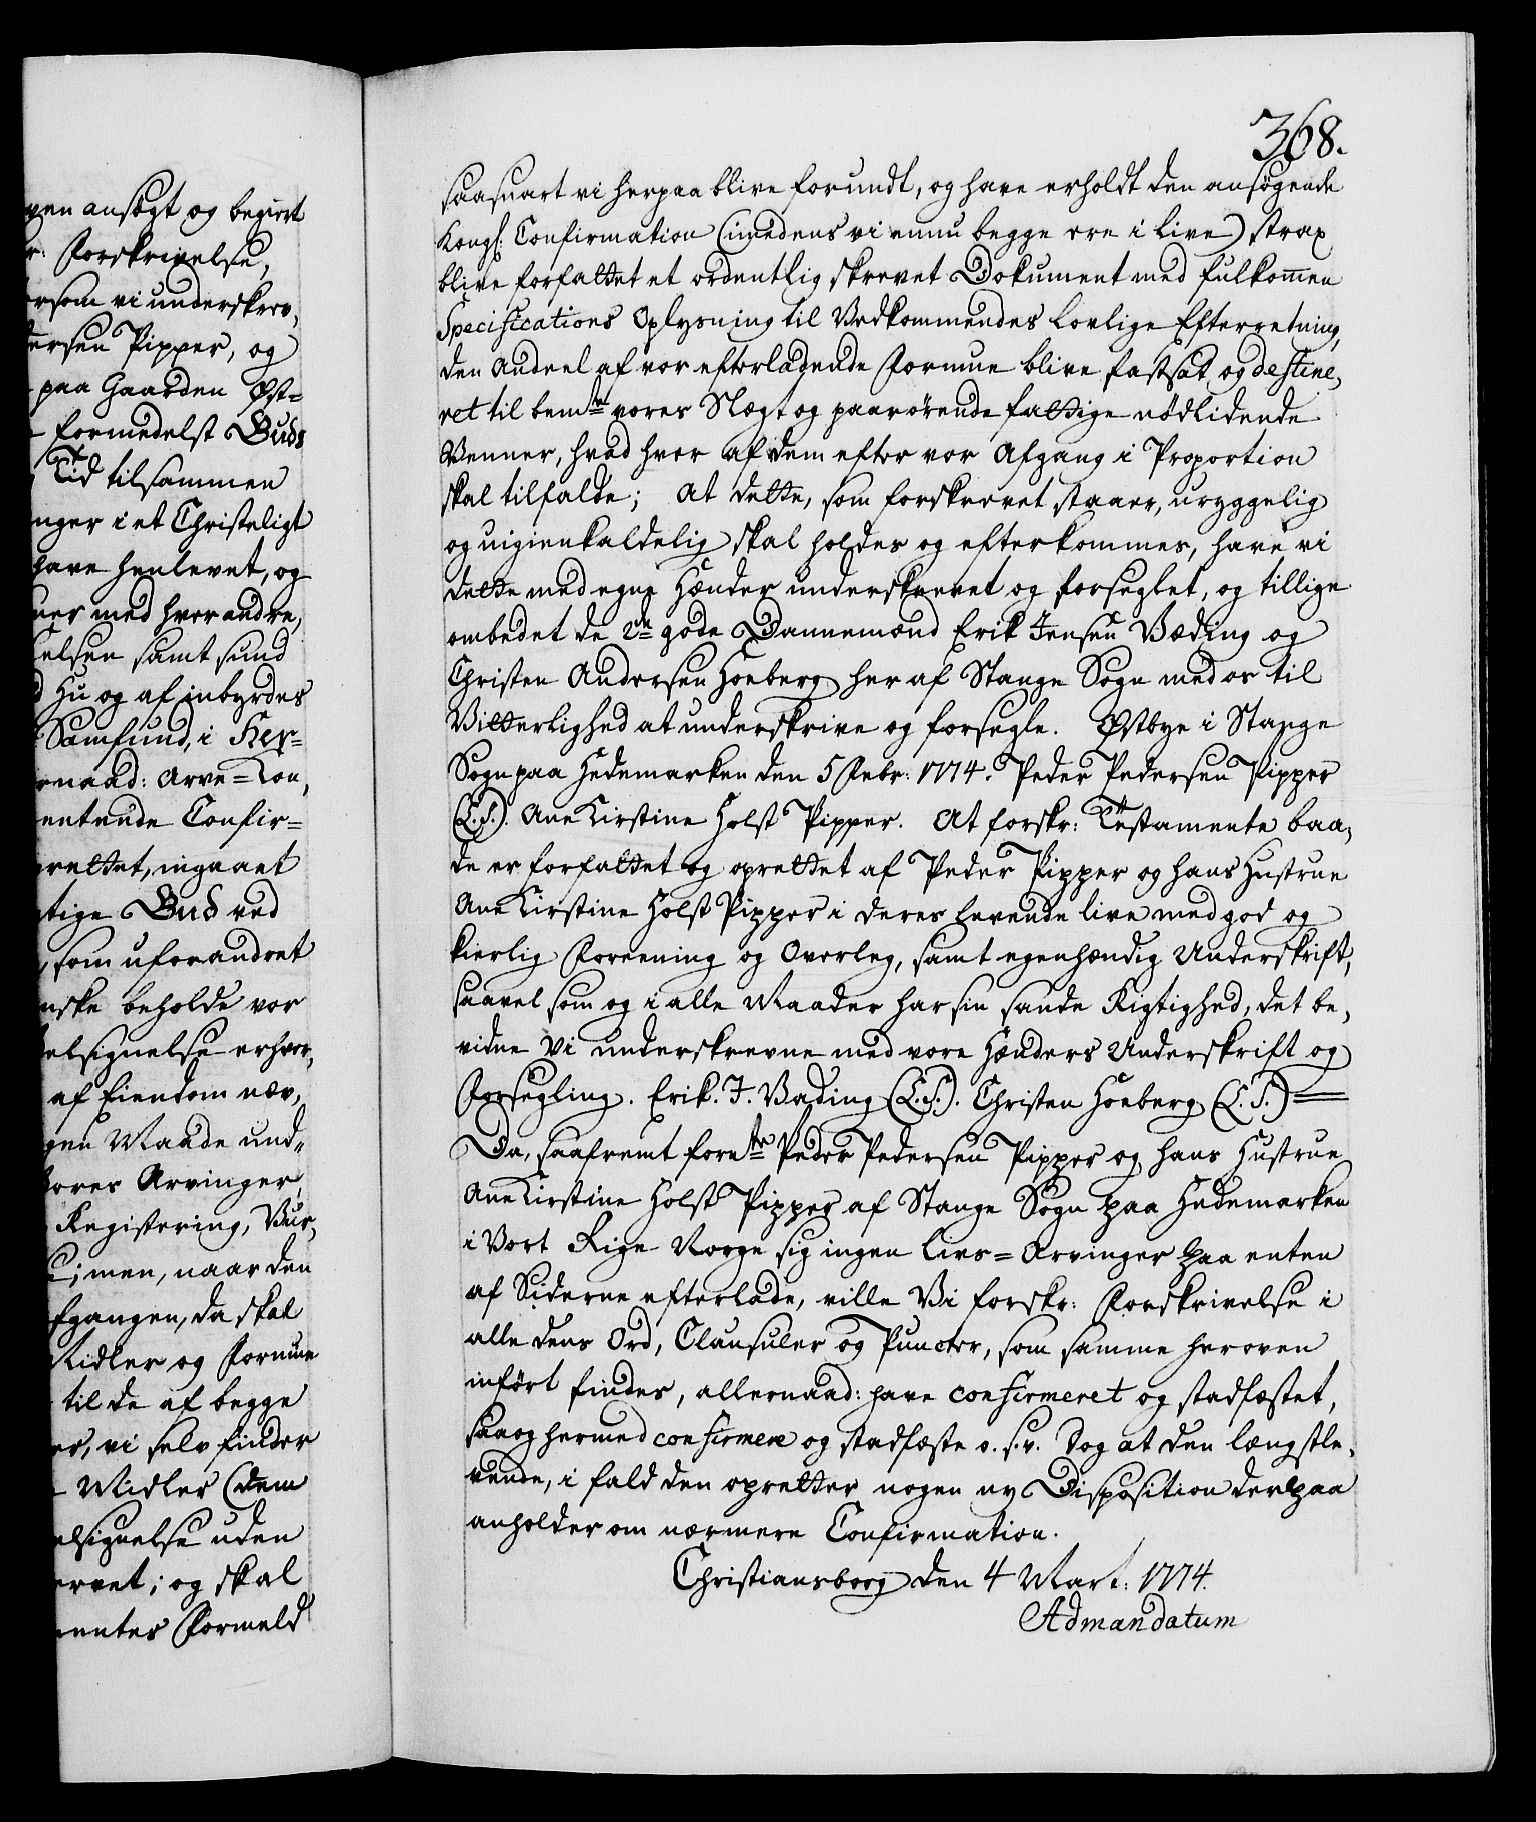 ven ansøgt og begiert
r: Forskrivelse,
rsom vi underskrev,
dersen Pipper, og
paa Gaarden Øst=
formedelst Guds
Tid tilsammen
nger i et Christeligt
have henlevet, og
ner med hverandre,
elsen samt sund
d Hu og af inbyrdes
Samfund, i Her=
rnaad: Arve=Kon,
entende Confir=
prettet, ingaaet
gtige Gud ved
, som uforandret
nske beholde vor
elsignelse erhver,
af Eiendom næv,
gen Maade und=
vores Arvinger,
Registering, Vur,
; men, naar den
fgangen, da skal
Midler og Formue
til de af begge
er, vi selv finder
Midler (dem
elsignelse uden
ervet; og skal
mentes Formeld
368.
saasnart vi herpaa blive forundt, og have erholdt den ansøgende
Kongl: Confirmation (imedens vi ennu begge ere i Live) strax
blive forfattet et ordentlig skrevet Dokument med fulkom̅en
Specifications Oplysning til Vedkommendes lovlige Efterretning,
den Andeel af vor efterladende Formue blive fastsat og destine,
ret til bemte vores Slægt og paarørende fattige nødlidende
Venner, hvad hver af dem efter vor Afgang i Proportion
skal tilfalde; At dette, som forskrevet staaer, uryggelig
og uigienkaldelig skal holdes og efterkommes, have vi
dette med egne Hænder underskrevet og forseglet, og tillige
ombedet de 2de gode Dannemænd Erik Jensen Væding og
Christen Andersen Hoeberg her af Stange Sogn med os til
Vitterlighed at underskrive og forsegle. Østbye i Stange
Sogn paa Hedemarken den 5 Febr: 1774. Peder Pedersen Pipper
(L.S.). Ane Kirstine Holst Pipper. At forskr: Testamente baa,
de er forfattet og oprettet af Peder Pipper og hans Hustrue
Ane Kirstine Holst Pipper i deres levende live med god og
kierlig Foreening og Overleg, samt egenhændig Underskrift,
saavel som og i alle Maader har sin sande Rigtighed, det be,
vidne Vi underskrevne med vore Hænders Underskrift og
Forsegling. Erik. J. Vading (L.S.). Christen Hoeberg (L.S.)
Da, saafremt fornte Peder Pedersen Pipper og hans Hustrue
Ane Kirstine Holst Pipper af Stange Sogn paa Hedemarken
i Vort Rige Norge sig ingen Livs=Arvinger paa enten
af Siderne efterlade, ville Vi forskr: Forskrivelse i
alle dens Ord, Clausuler og Puncter, som samme heroven
inført findes, allernaad: have confirmeret og stadfæstet,
saa og hermed confirmere og stadfæste o.s.v. Dog at den længstle,
vende, i fald den opretter nogen ny Disposition derpaa
anholder om nærmere Confirmation.
Christiansborg den 4 Mart: 1774.
Admandatum